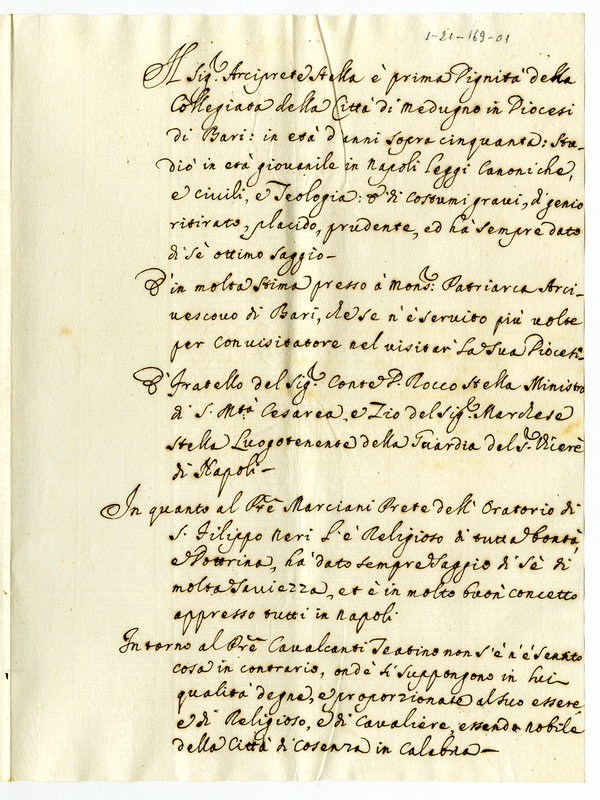 1-21-169-01
Il Sig.r Arciprete Stella è prima Dignità della
Collegiata della Città di Medugno in Diocesi
di Bari: in età d'anni sopra cinquanta: Stu-
diò in età giovanile in Napoli Leggi Canoniche,
e civili, e Teologia: È di costumi gravi, di genio
ritirato, placido, prudente, ed hà sempre dato
di sè ottimo saggio—
È in molta stima presso à Mons.r Patriarca Arci-
vescovo di Bari, che se n'è servito più volte
per Convisitatore nel visitar La sua Diocesi.
È fratello del Sig.r Conte D. Rocco Stella Ministro
di S. Mtà Cesarea, e Zio del Sig.r Marchese
Stella Luogotenente della Guardia del S.r Vicerè
di Napoli—
In quanto al Prē Marciani Prete dell'Oratorio di
S. Filippo Neri L'è Religioso di tutta bontà,
e Dottrina, hà dato sempre saggio di sè di
molta saviezza, et è in molto buon concetto
appresso tutti in Napoli
Intorno al Prē Cavalcanti Teatino non s'è n'è sentito
cosa in contrario, onde si suppongono in lui
qualità degne, e proporzionate al suo essere
e di Religioso, e di Cavaliere, essendo nobile
della Città di Cosenza in Calabria—